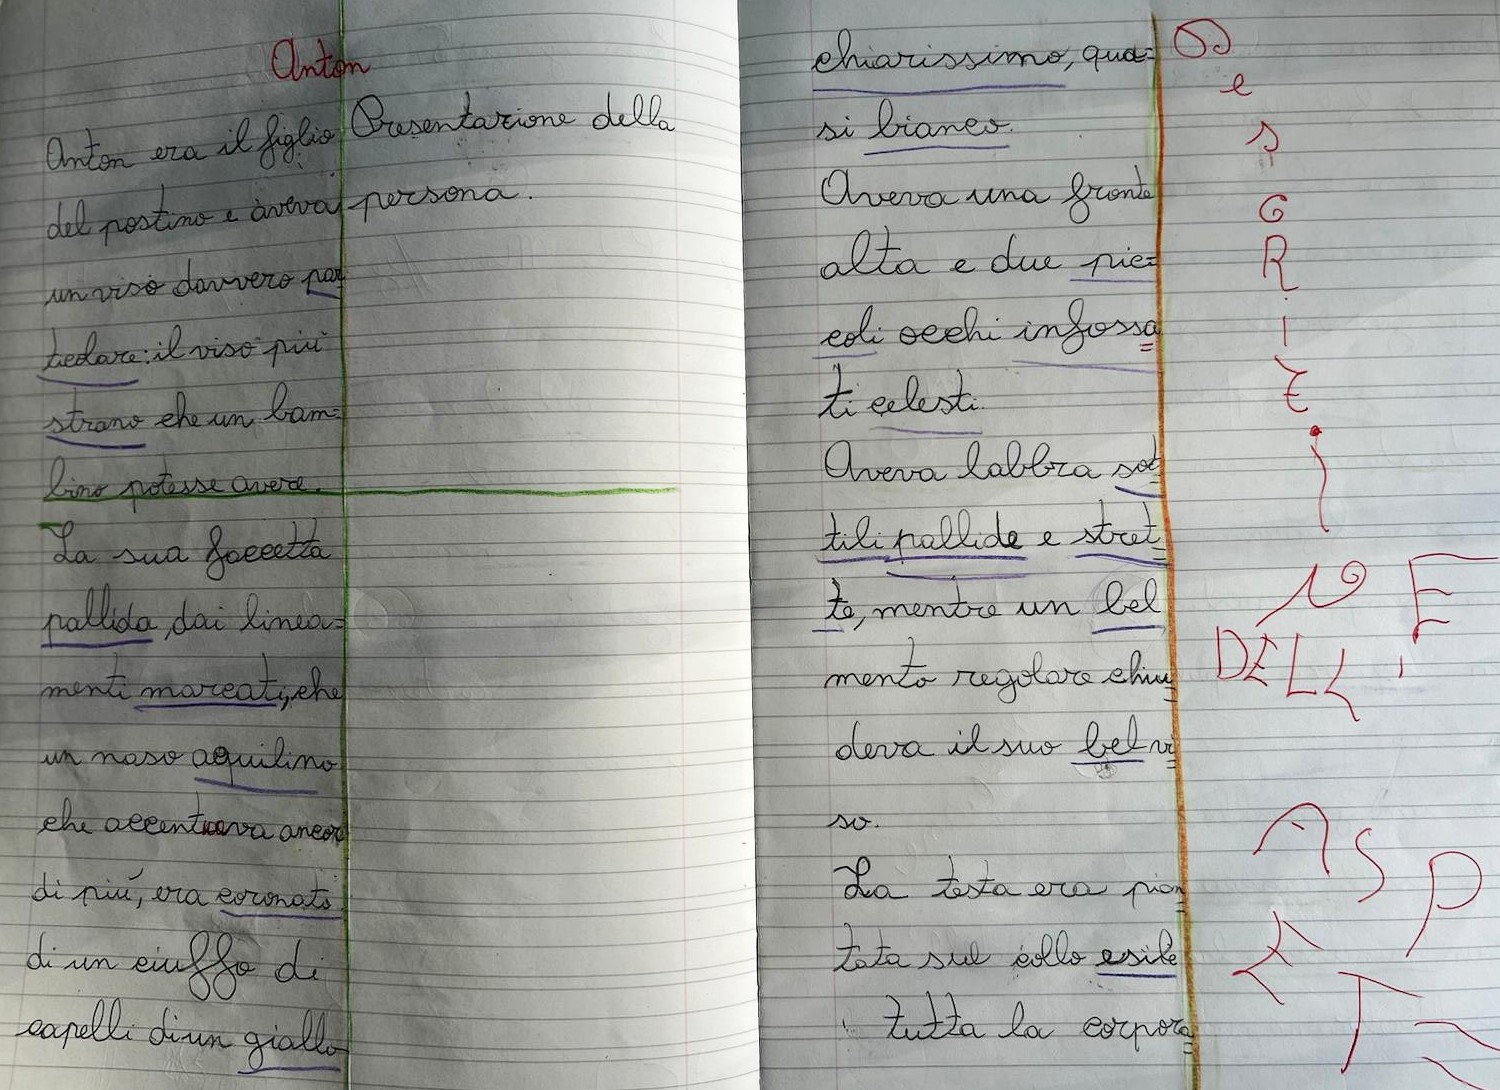 Anton
Anton era il figlio
del postino e aveva
un viso davvero par
ticolare: il viso più
strano che un bam=
bino potesse avere.
La sua faccetta
pallida, dai linea=
menti marcati, che
un naso aquilino
che accentuava ancor
di più, era coronato
di un ciuffo di
capelli di un giallo
Presentazione della
persona.
chiarissimo, qua=
si bianco.
Aveva una fronte
alta e due pic=
coli occhi infossa
ti celesti.
Aveva labbra sot
tili pallide e stret
te, mentre un bel
mento regolare chiu
deva il suo bel vi
so.
La testa era pian
tata sul collo esile
tutta la corpora
De
s
C
R
i
z
i
o
N E
DELL'
A S P
E T T